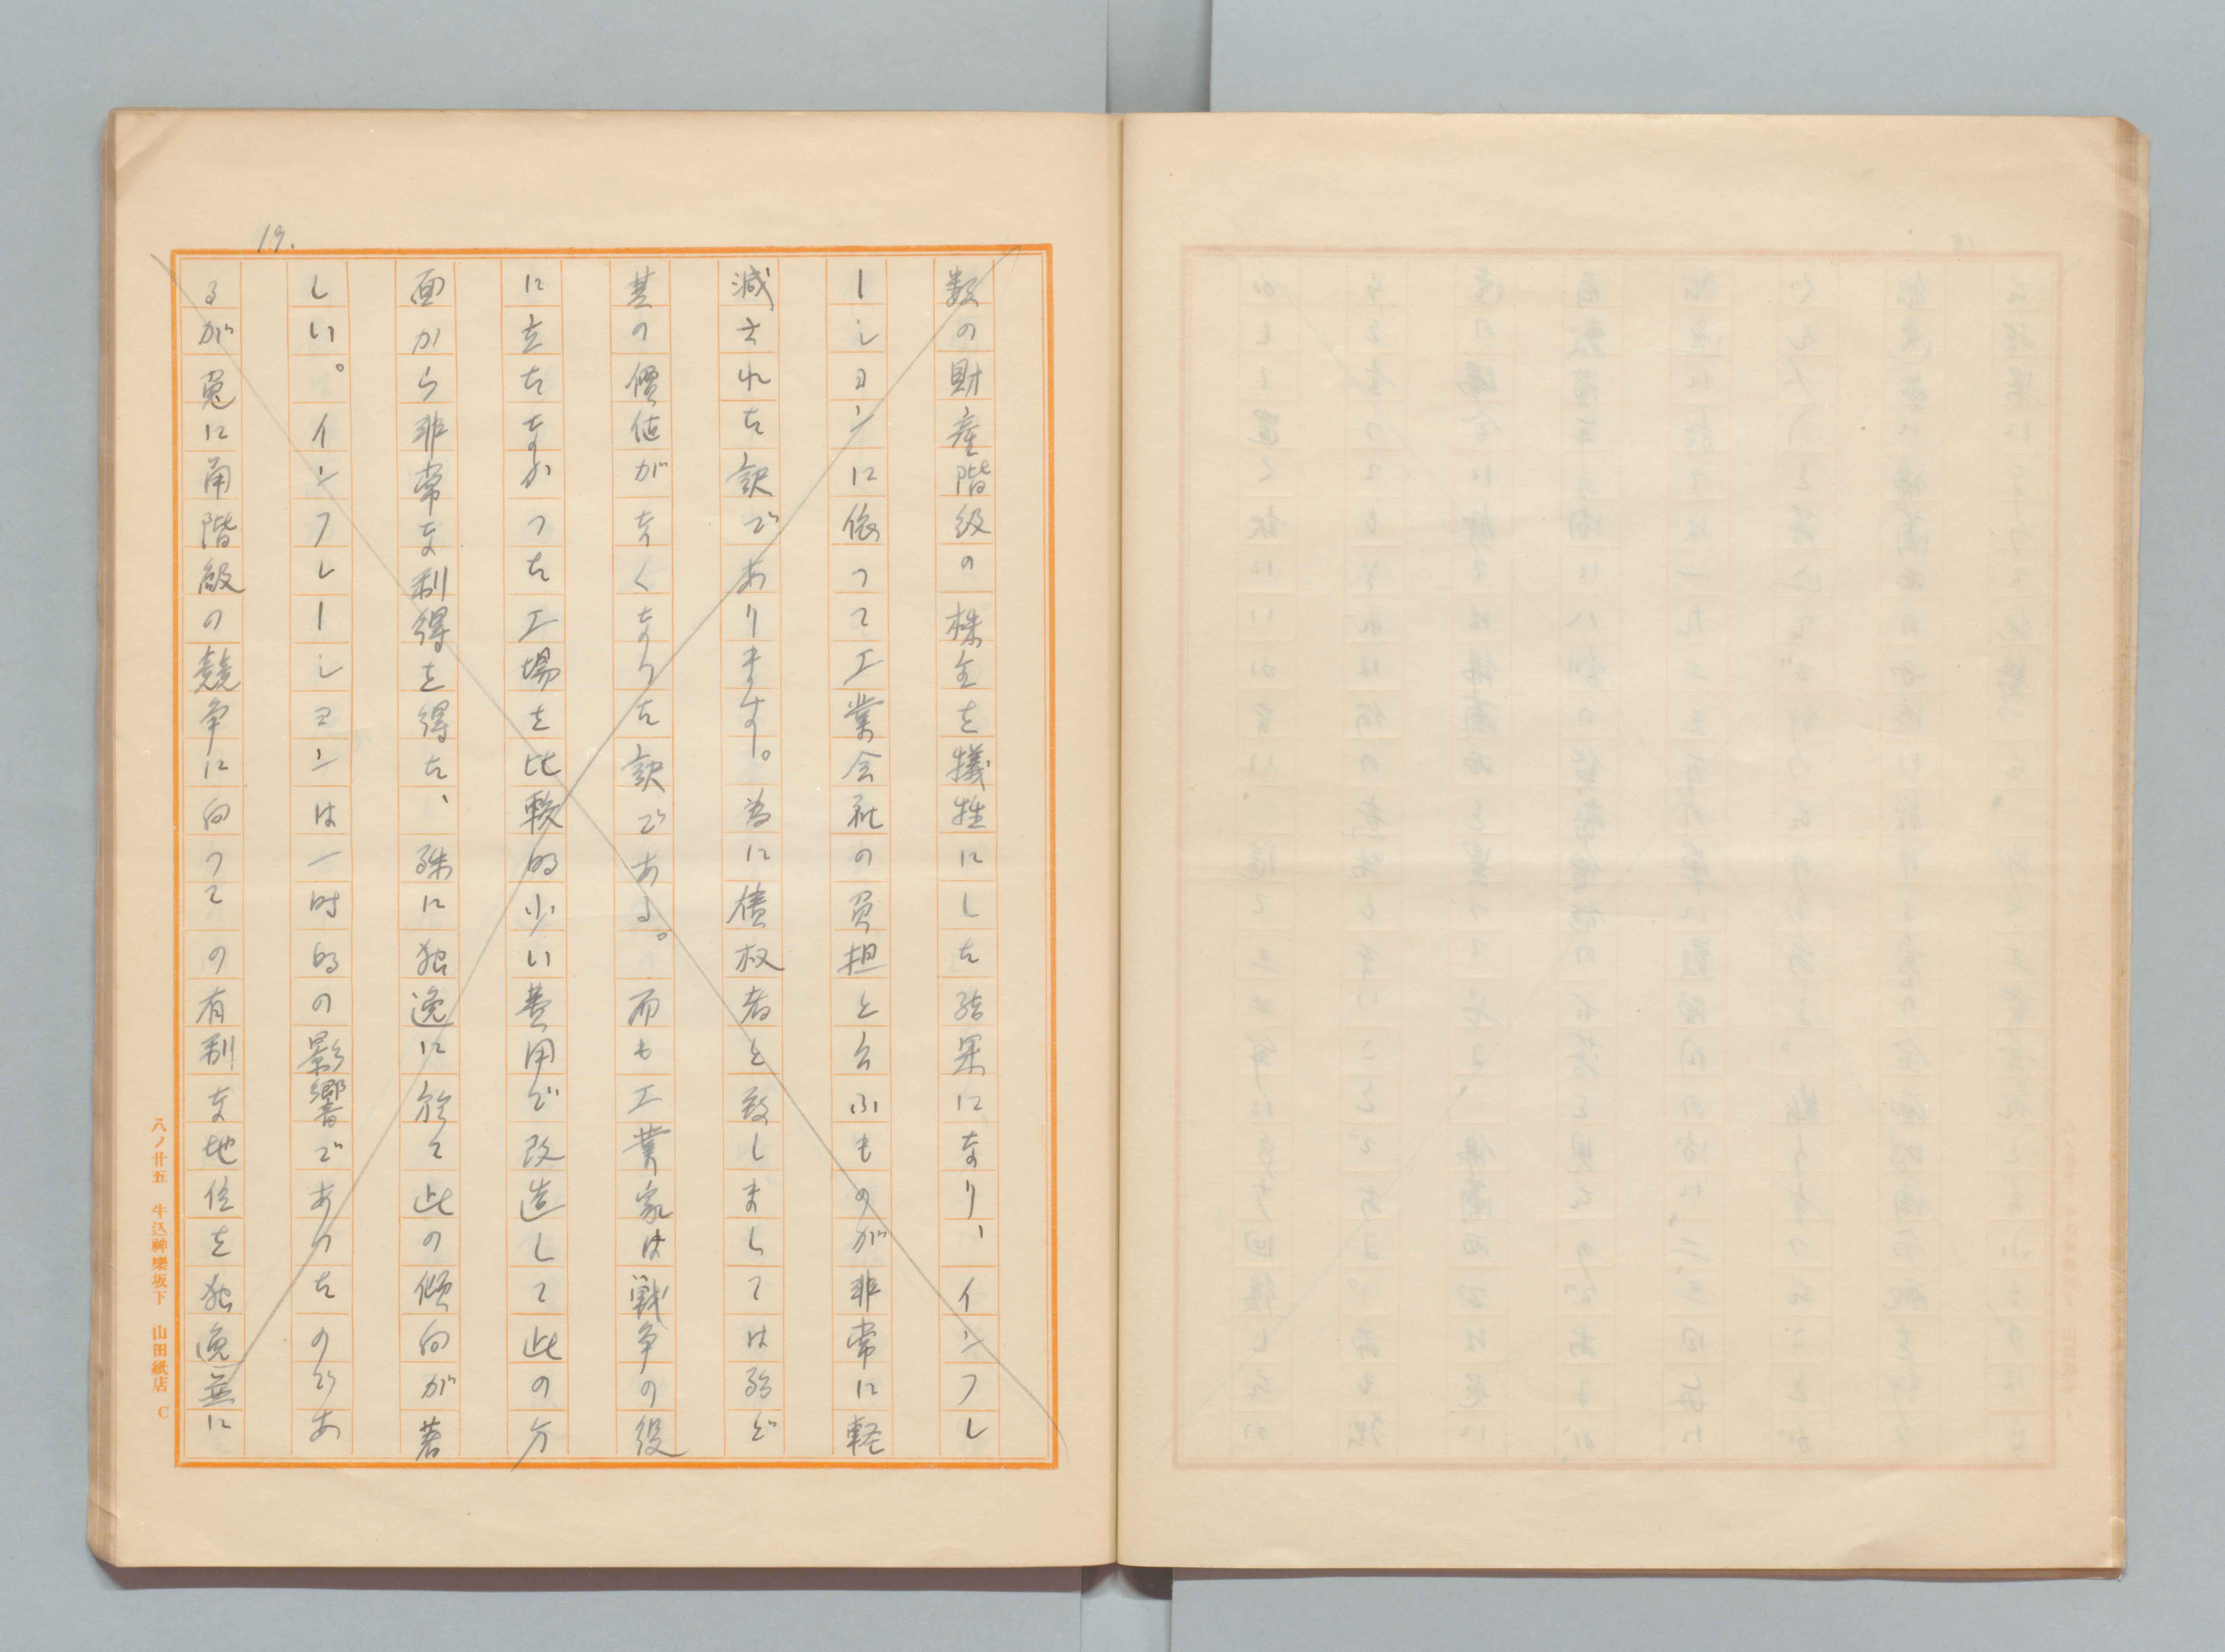 19.
数の財産階級の株主を犠牲にした結果になり、インフレ
ーシヨンに依つて工業会社の負担と云ふものが非常に軽
減された訳であります。為に債权者と致しましては殆ど
其の價値がなくなつた訳である。而も工業家は戦争の役
に立たなかつた工場を比較的少い費用で改造して此の方
面から非常な利得を得た、殊に独逸に於て此の傾向が著
しい。インフレーシヨンは一時的の影響であつたのであ
るが兎に角階級の競争に向つての有利な地位を独逸並に
八ノ廿五 牛込神樂坂下 山田紙店 C